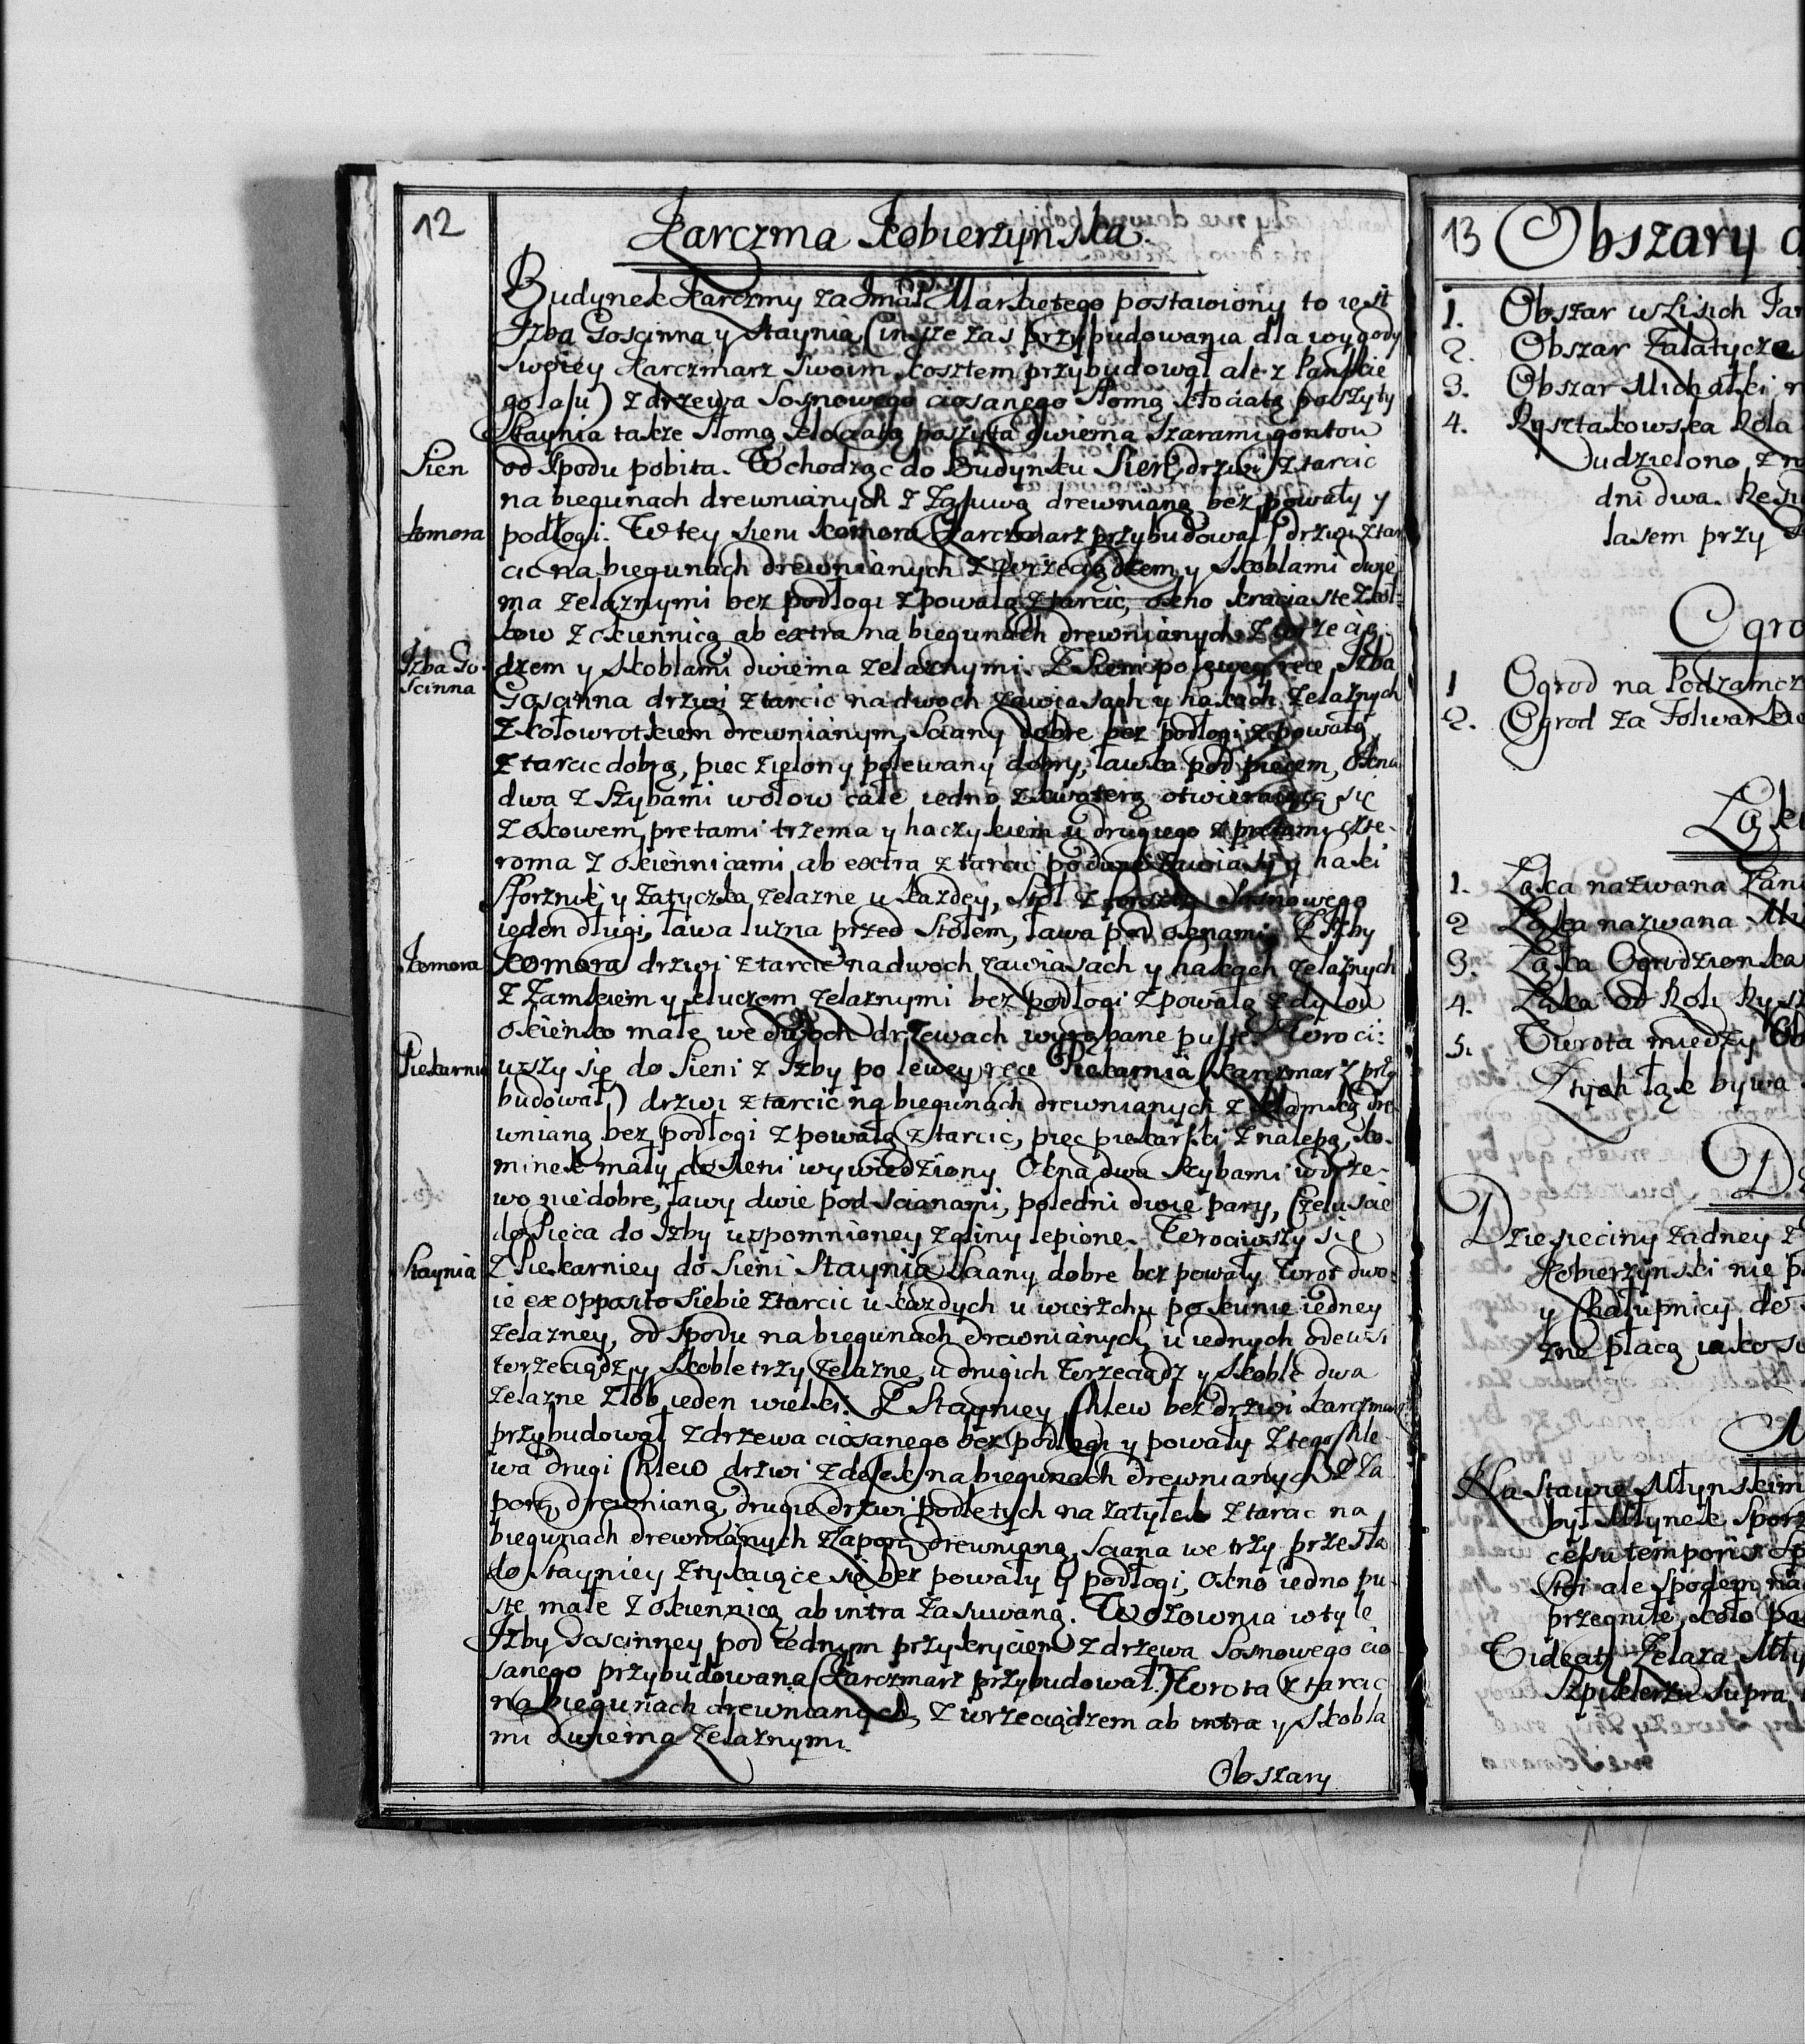 12
Karczma Kobierzynska.
Budynek Karczmy za Jmci Markiętego postawiony to iest
Izba Goscinna y Staynia (insze zas przybudowania dla wygody
swoiey Karczmarz swoim kosztem przybudował ale z Panskie
go lasu) z drzewa Sosnowego ciosanego słomą kłociatą poszyty
Staynia także słomą kłociatą poszyta dwiema szarami gontow
Sien
od spodu pobita. Wchodząc do Budynku Sień, drzwi z tarcic
na biegunach drewnianych z zasuwą drewnianą bez powały y
Komora
podłogi. W tey sieni Komora (Karczmarz przybudował) drzwi z tar
cic na biegunach drewnianych z wrzeciądzem y skoblami dwie
ma żelaznymi bez podłogi z powałą z tarcic, okno kraciaste z koł
kow z okiennicą ab extra na biegunach drewnianych z wrzecią
Izba Go-
scinna
dzem y skoblami dwiema żelaznymi. Z Sieni po lewey ręce Izba
Goscinna drzwi z tarcic na dwoch zawiasach y hakach żelaznych
z kołowrotkiem drewnianym, sciany dobre bez podłogi z powałą
z tarcic dobrą, piec zielony polewany dobry, ławka pod piecem, okna
dwa z szybami wołow całe iedno z kwaterą otwieraiącą się
z okowem, prętami trzema y haczykiem u drugiego z prętami czte-
roma z okiennicami ab extra z tarcic po dwie zawiasy y haki
sforznik y zatyczka żelazne u każdey, stoł z forsztu Sosnowego
ieden długi, ława luzna przed stołem, ława pod oknami. Z Izby
Komora
Komora drzwi z tarcic na dwoch zawiasach y hakach żelaznych
z zamkiem y kluczem żelaznymi bez podłogi z powałą z dylow
okienko małe we dwoch drzewach wyrąbane puste. Wroci-
Piekarnia
wszy się do Sieni z Izby po lewey ręce Piekarnia (karczmarz przy
budował) drzwi z tarcic na biegunach drewnianych z klamką dre
wnianą bez podłogi z powałą z tarcic, piec piekarski z nalepą, ko-
minek mały do sieni wywiedziony Okna dwa szybami w drze-
wo nie dobre, ławy dwie pod scianami, poledni dwie pary, czeluscie
do Pieca do Izby wspomnioney z gliny lepione. Wrociwszy się
Staynia
z Piekarniey do Sieni Staynia sciany dobre bez powały Wrot dwo-
ie ex opposito siebie z tarcic u każdych u wierzchu po kunie iedney
żelazney, od spodu na biegunach drewnianych, u iednych odewsi
wrzeciądz y skoble trzy żelazne, u drugich wrzeciądz y skoble dwa
żelazne żłob ieden wielki. Z Stayniey Chlew bez drzwi karczmarz
przybudował z drzewa ciosanego bez podłogi y powały z tego Chle
wa drugi Chlew drzwi z desek na biegunach drewnianych z za
porą drewnianą, drugie drzwi podle tych na zatyłek z tarcic na
biegunach drewnianych z zaporą drewnianą, sciana we trzy przesła
do Stayniey ztykaiące się bez powały y podłogi, okno iedno pu-
ste małe z okiennicą ab intra zasuwaną. Wozownia w tyle
Izby Goscinney pod iednym przykryciem z drzewa Sosnowego cio
sanego przybudowana (Karczmarz przybudował.) Wrota z tarcic
na biegunach drewnianych, z wrzeciądzem ab intra y skobla
mi dwiema żelaznymi.
Obszary
13 Obszary
1. Obszar w Lisich
2. Obszar Załatycze
3. Obszar Michałki
4. Rysztakowska Rola
udzielono
dni dwa.
lasem przy
Ogro
1 Ogrod na Podzamcz
2. Ogrod za Folwark
Łąki
1. Łąka nazwana
2 Łąka nazwana
3. Łąka Ogrodzionka
4. Łąka od Roli Rysz
5. Cwrota między Ob
Z tych łąk bywa
Dziesieciny żadney
Kobierzynski nie
y Chałupnicy do
żne płacą iako
Na Stawie Młynskim
był Młynek
cessu temporis
stoi ale spodem
przegniłe, koło
Videat Żelaza
Szpiklerzu supra